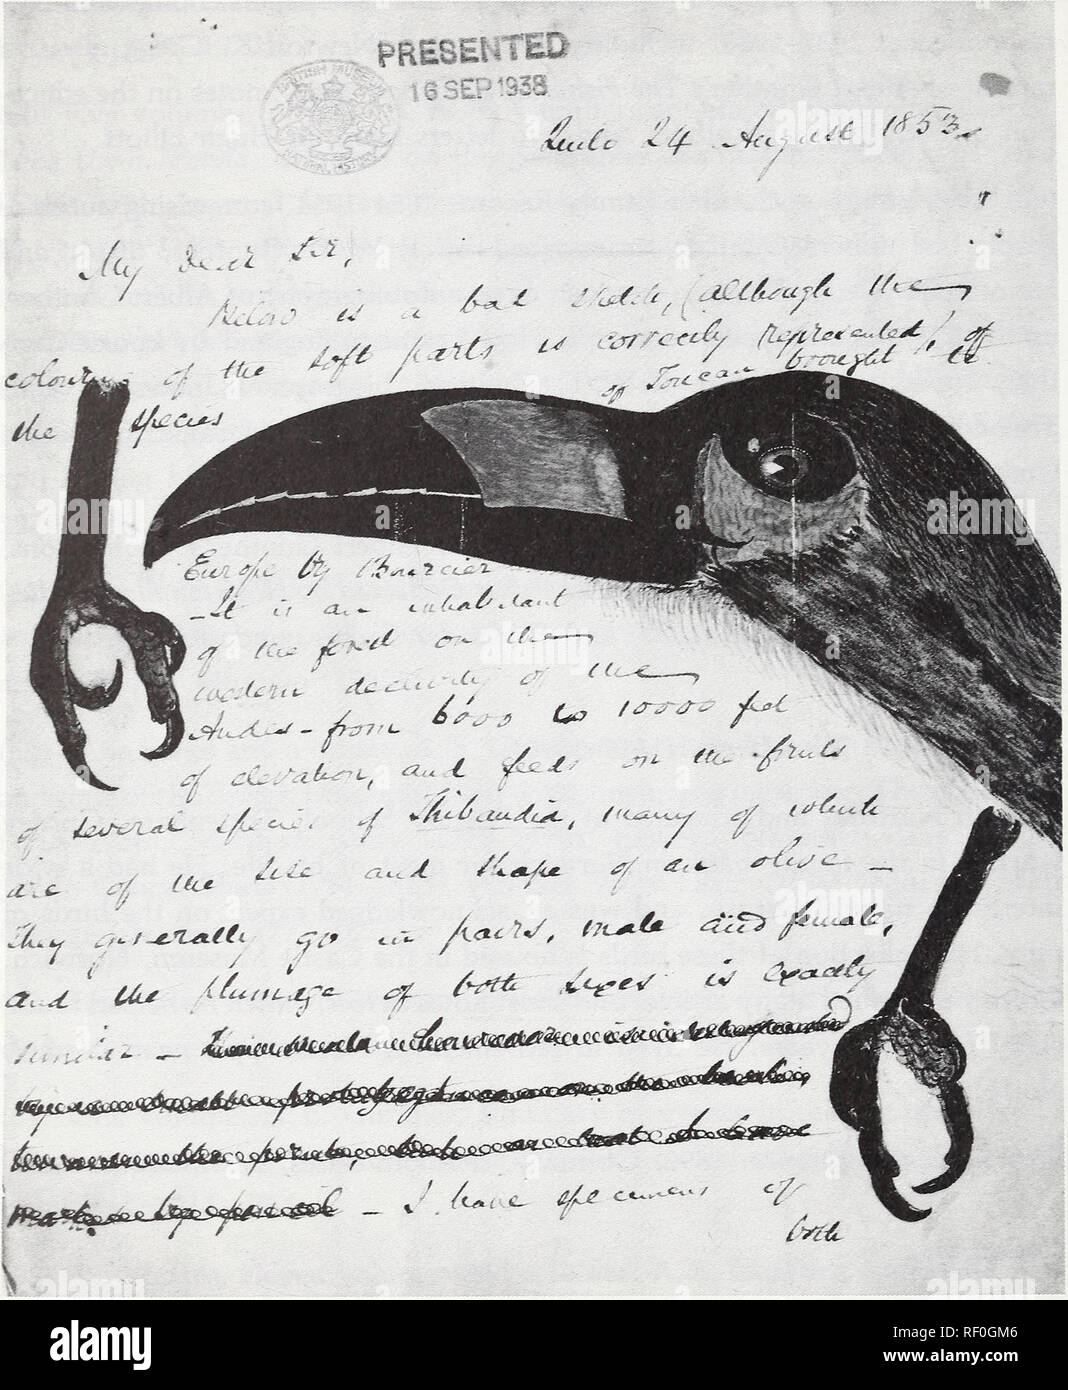 PRESENTED
16 SEP 1938
BRITISH MUSEUM
NATURAL HISTORY
Quito 24 August 1853
My Dear Sir,
Below is a bad sketch, (although the
colouring of the soft parts is correctly represented) of
the species of Toucan brought to
Europe by Bourcier
- It is an inhabitant
of the forest on the
western declivity of the
Andes - from 6000 to 10000 feet
of elevation, and feeds on the fruits
of several species of Thibaudia, many of which
are of the size and shape of an olive -
They generally go in pairs, male and female,
and the plumage of both sexes is exactly
similar -
- I have specimens of
both
alamy
Image ID: RF0GM6
www.alamy.com